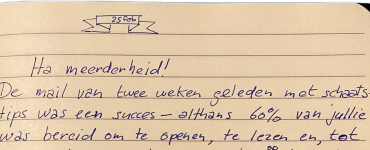 25 Feb
Ha meerderheid!
De mail van twee weken geleden met schaats-
tips was een succes – althans 60% van jullie
was bereid om te openen, te lezen en, tot